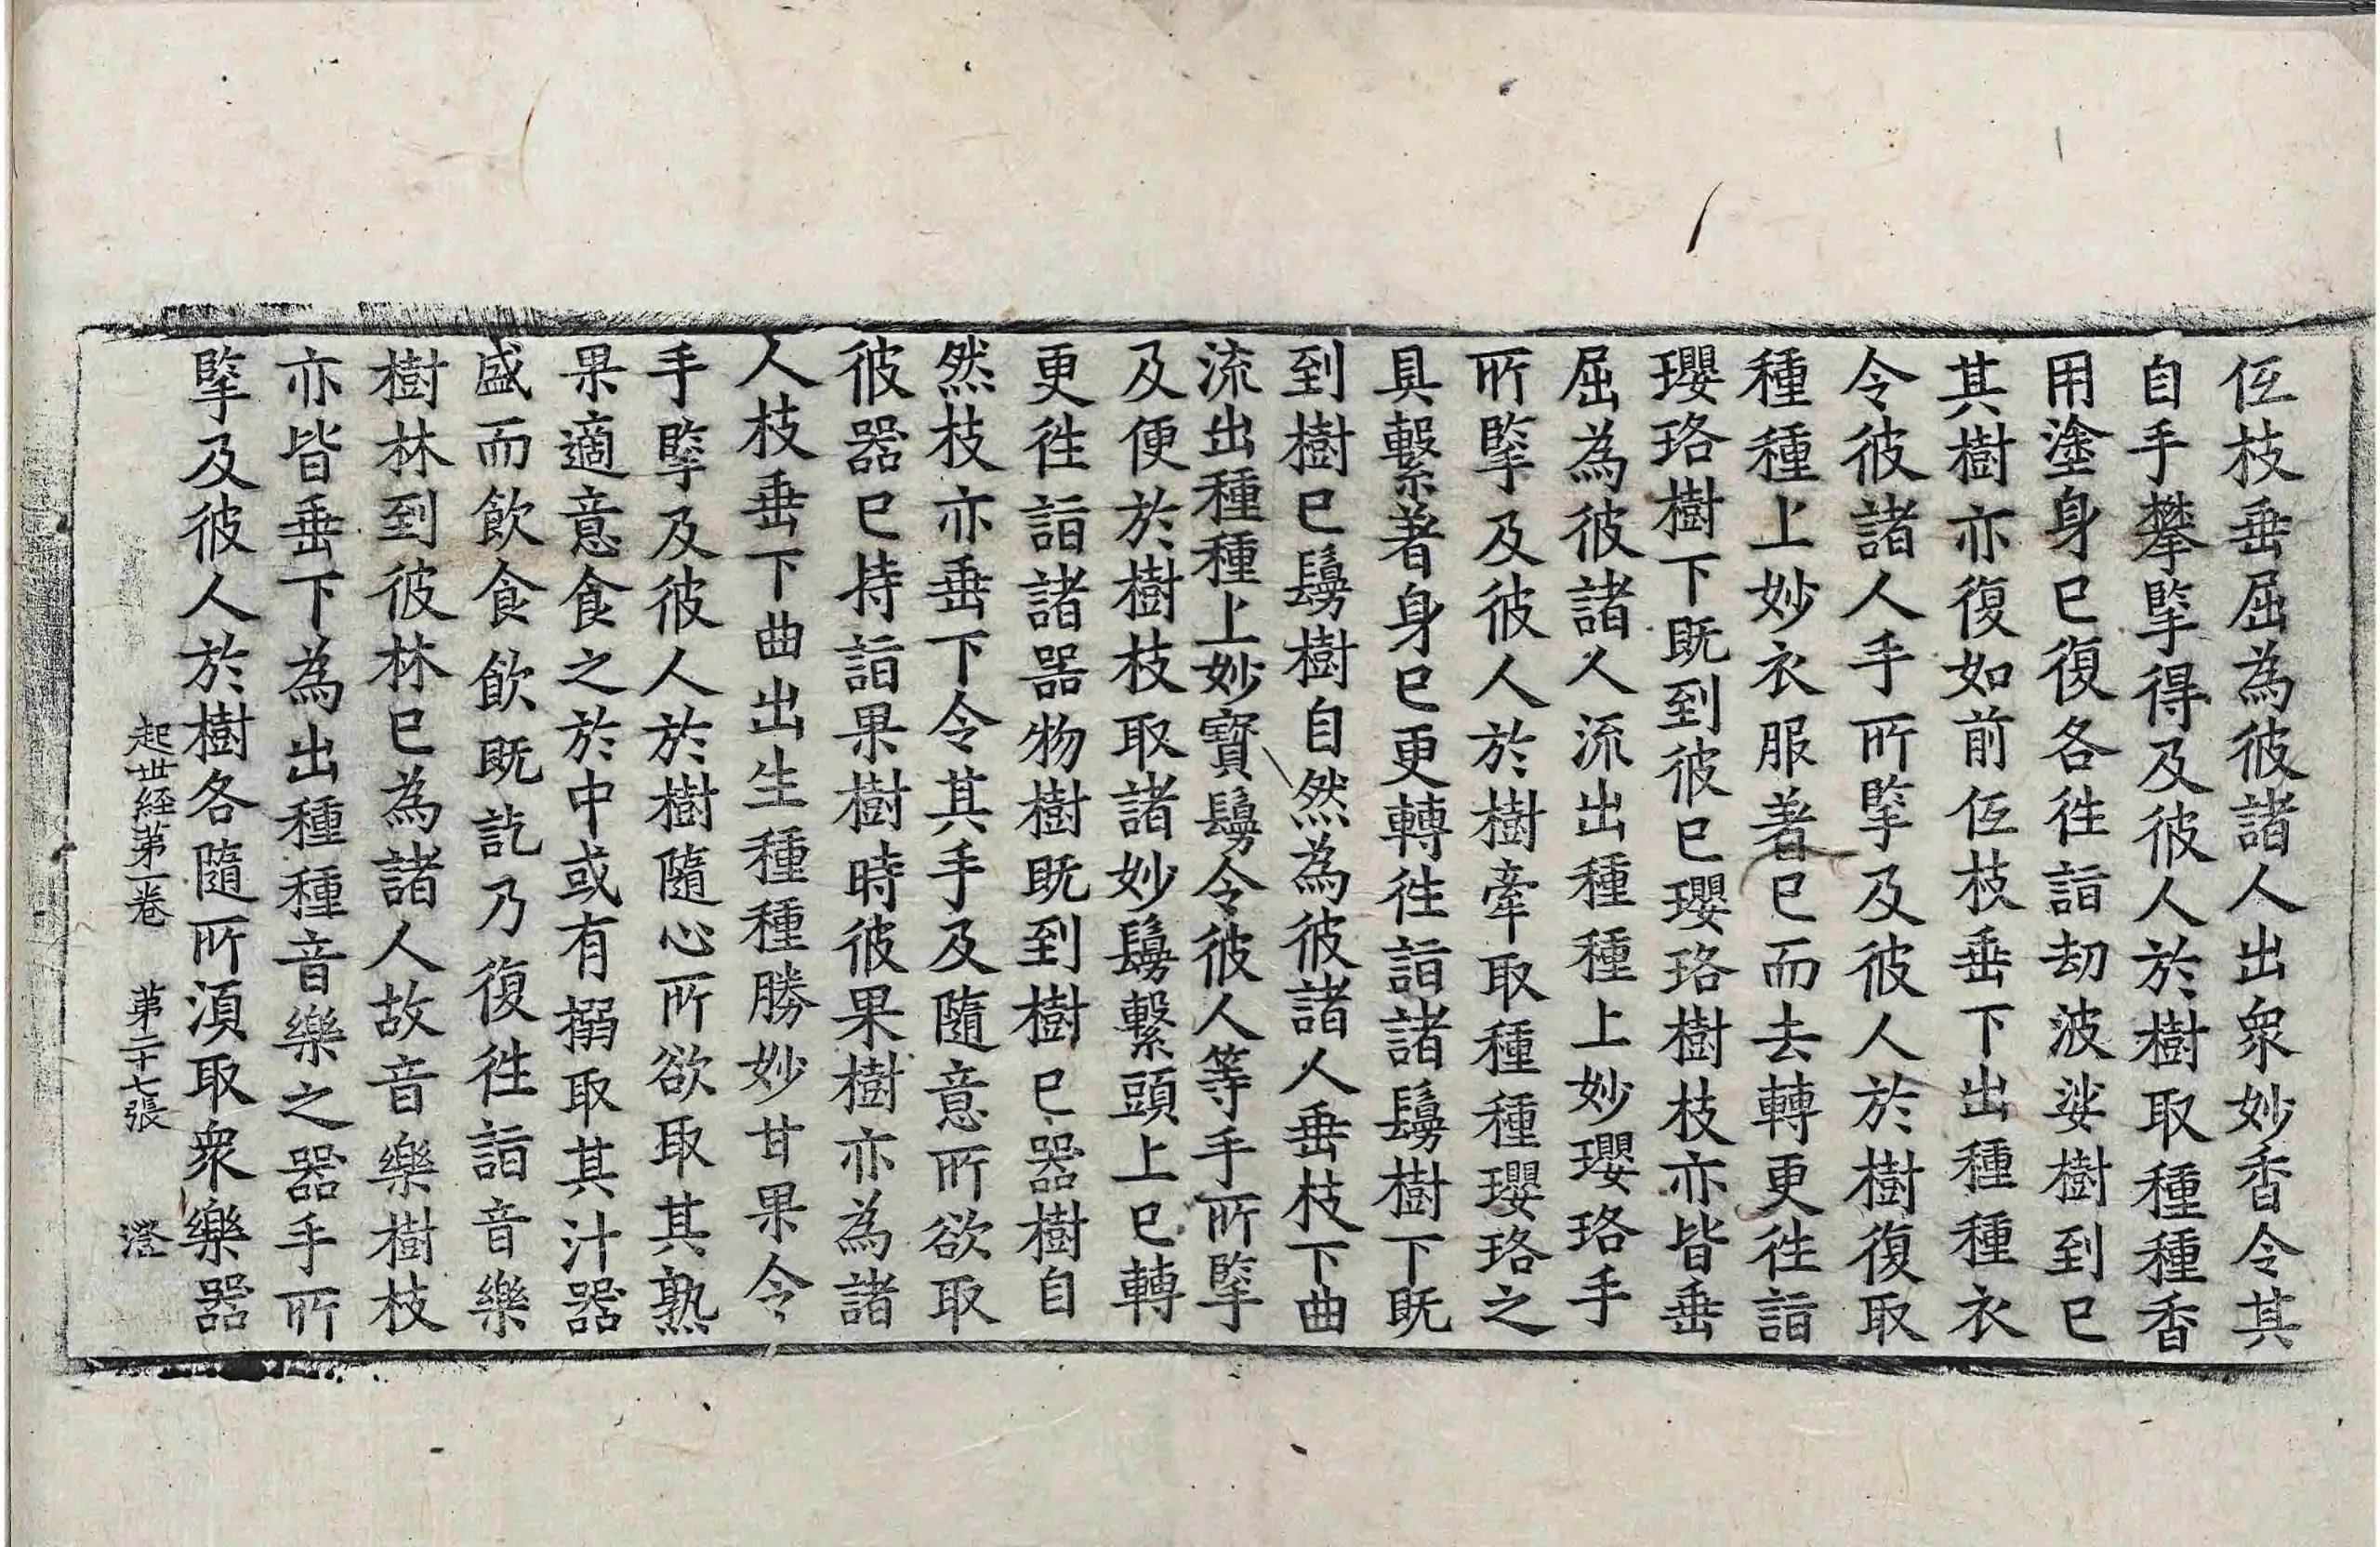 仾枝垂屈為彼諸人出衆妙香令其
自手攀擥得及彼人於樹取種種香
用塗身已復各徃詣劫波娑樹到已
其樹亦復如前仾枝垂下出種種衣
令彼諸人手所擥及彼人於樹復取
種種上妙衣服著已而去轉更徃詣
瓔珞樹下既到彼已瓔珞樹枝亦皆垂
屈為彼諸人流出種種上妙瓔珞手
所擥及彼人於樹牽取種種瓔珞之
具繫著身已更轉徃詣諸鬘樹下既
到樹已鬘樹自然為彼諸人垂枝下曲
流出種種上妙寶鬘令彼人等手所擥
及便於樹枝取諸妙鬘繫頭上已轉
更徃詣諸器物樹既到樹已器樹自
然枝亦垂下令其手及隨意所欲取
彼器已持詣果樹時彼果樹亦為諸
人枝垂下曲出生種種勝妙甘果令
手擥及彼人於樹隨心所欲取其熟
果適意食之於中或有搦取其汁器
盛而飲食飲既訖乃復徃詣音樂
樹林到彼林已為諸人故音樂樹枝
亦皆垂下為出種種音樂之器手所
擥及彼人於樹各隨所湏取衆樂器
起世経第一卷 第二十七張 澄